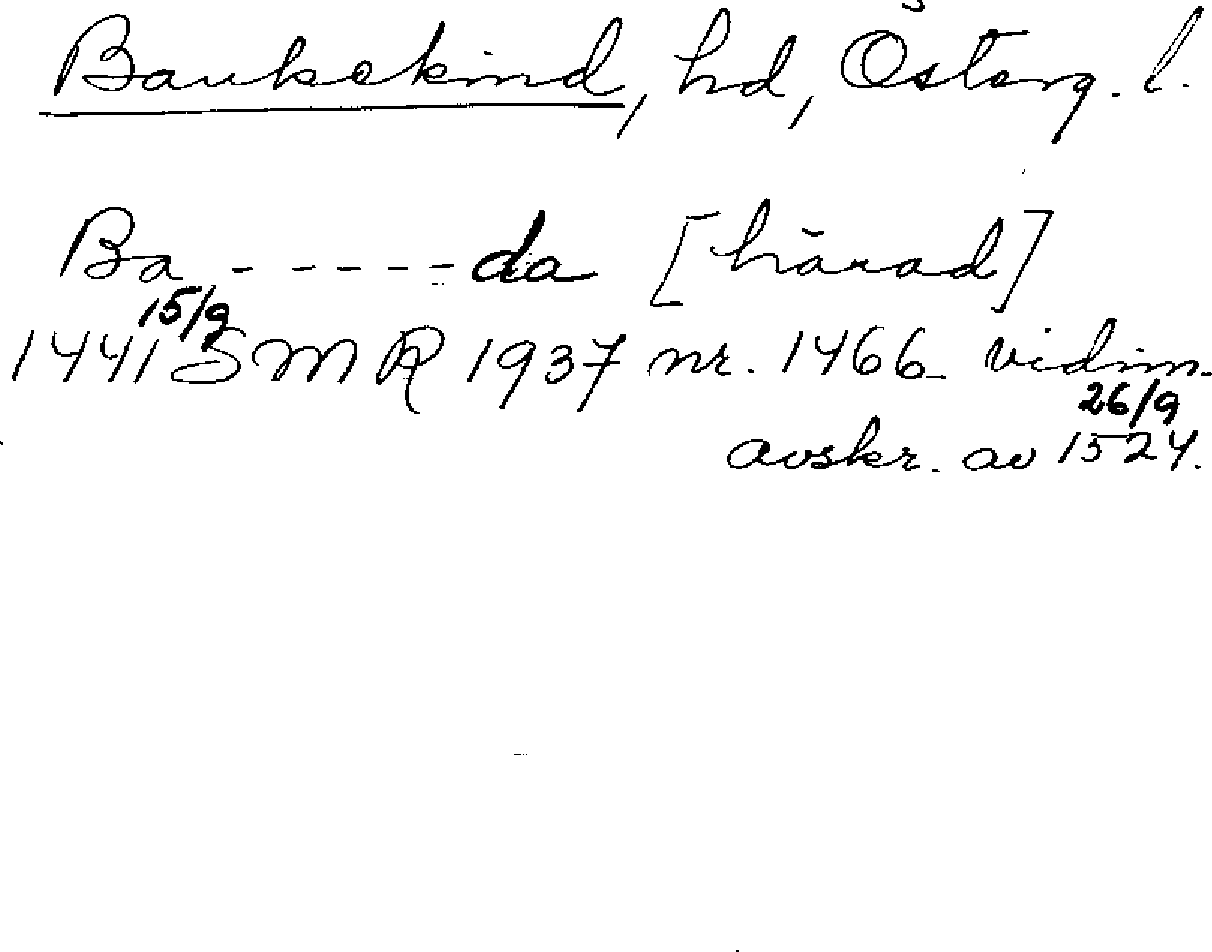 Bankekind, hd, Österg. l.
Ba - - - - - - da [härad]
15/9
1441 SMR 1937 nr. 1466 vidim.
26/9
avskr. av 1524.